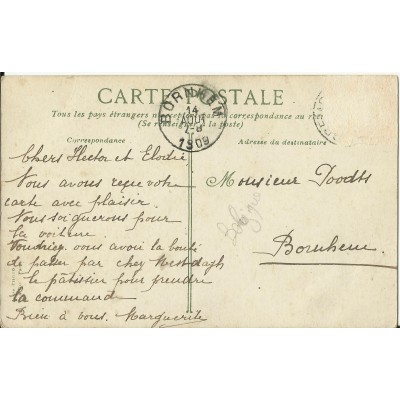 CARTE POSTALE
Tous les pays étrangers n'acceptent pas la correspondance au recto
(Se renseigner à la poste)
BORNHEM
14
AOUT
7-8
1909
Correspondance
Adresse du destinataire
Chers Hector et Elodie
Nous avons reçue votre
carte avec plaisir.
Nous soignerons pour
la voiture
Voudriez vous avoir la bonté
de passer par chez Westdagh
le pâtissier pour prendre
la command
Bien à vous. Marguerite
Monsieur Doodts
Bornhem.